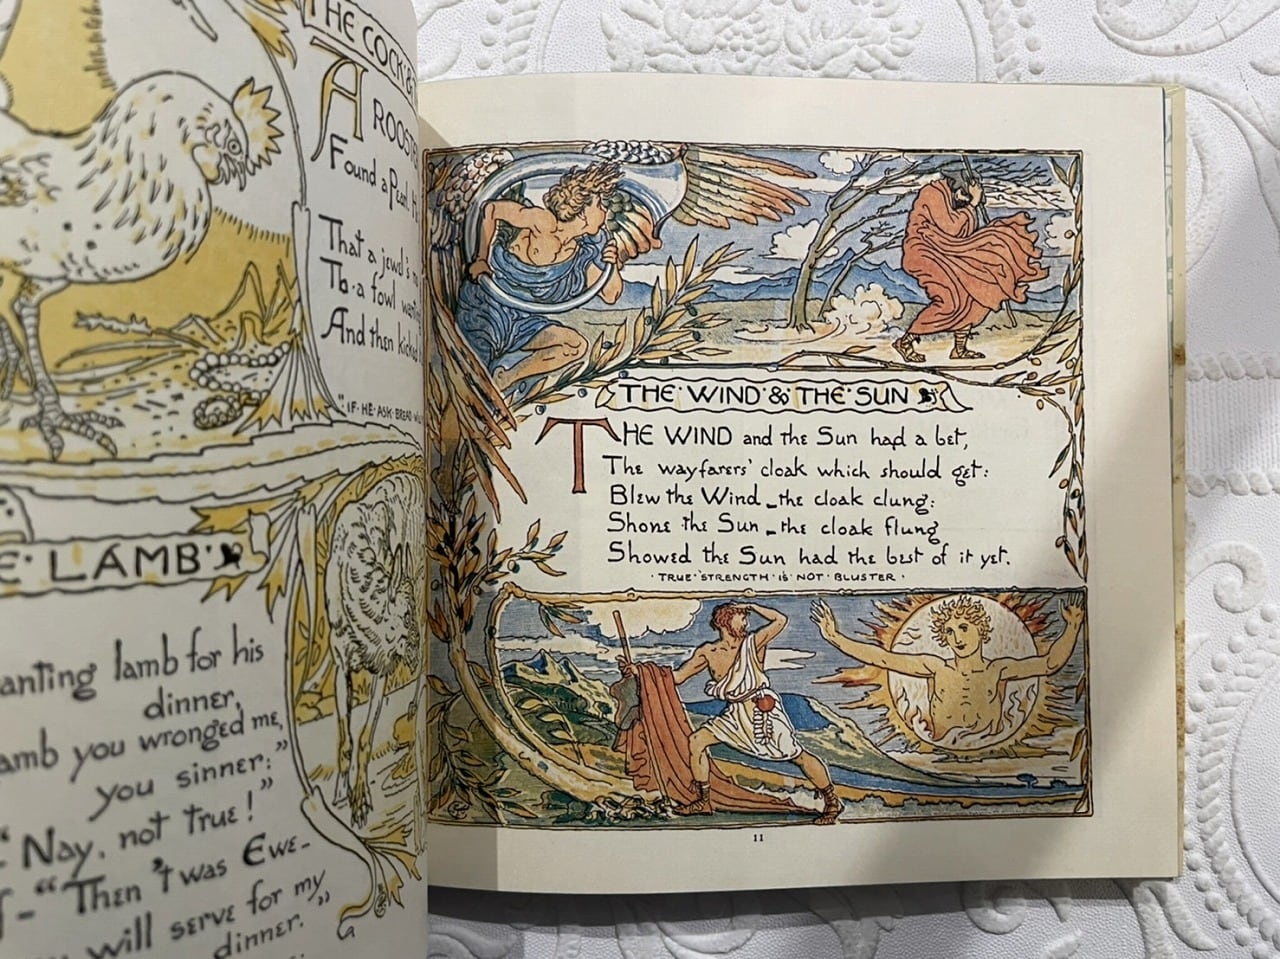 THE COCK &
A ROOST
Found a Pearl
That a jewel's
To a fowl
And then kicked
"IF HE ASK BREAD
LAMB
lamb for his
dinner,
you wronged me,
you sinner:"
"Nay, not true!"
"Then 't was Ewe-
will serve for my
dinner."
THE WIND & THE SUN
THE WIND and the Sun had a bet,
The wayfarers' cloak which should get:
Blew the Wind – the cloak clung:
Shone the Sun – the cloak flung
Showed the Sun had the best of it yet.
· TRUE STRENGTH IS NOT BLUSTER ·
11